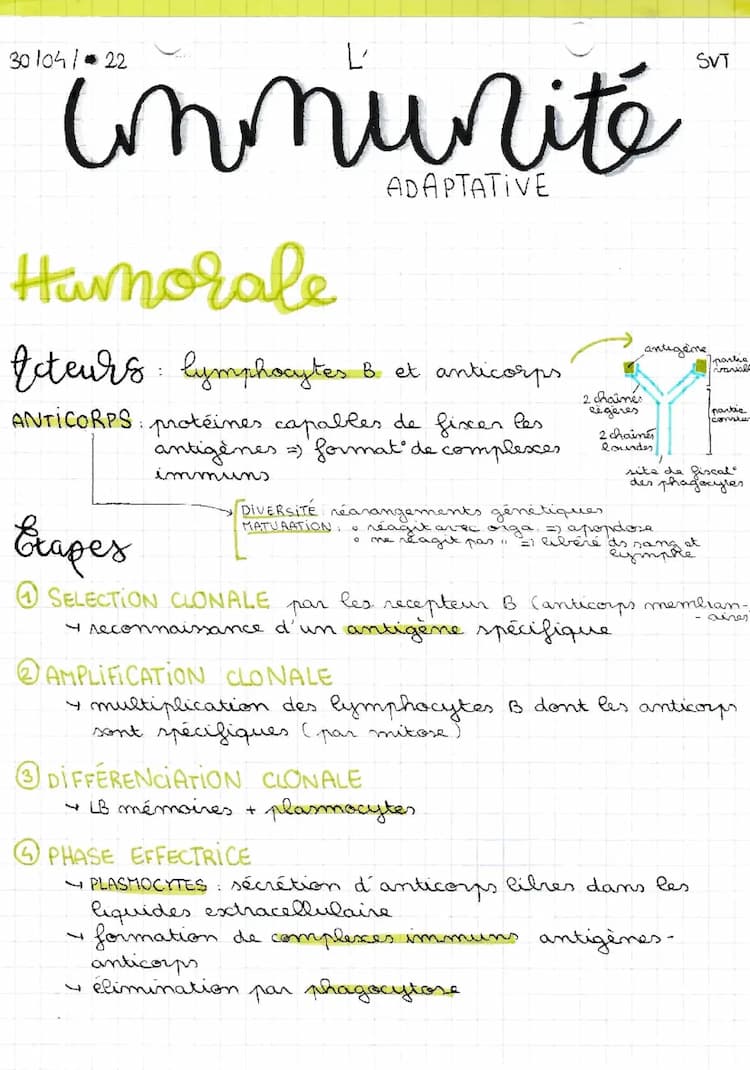 30/04/22
L'
SVT
immunité
ADAPTATIVE
Humorale
Acteurs : lymphocytes B et anticorps
antigène
partie variabl
2 chaînes légères
partie constan
2 chaînes lourdes
site de fixat° des phagocytes
ANTICORPS : protéines capables de fixer les
antigènes => format° de complexes
immuns
DIVERSITÉ : réarangements génétiques
MATURATION : ◦ réagit avec orga. => apopdose
◦ ne réagit pas " => libéré ds sang et
lymphe
Étapes
① SELECTION CLONALE par les recepteur B (anticorps membran-
-aires
↳ reconnaissance d'un antigène spécifique
② AMPLIFICATION CLONALE
↳ multiplication des lymphocytes B dont les anticorps
sont spécifiques (par mitose)
③ DIFFÉRENCIATION CLONALE
↳ LB mémoires + plasmocytes
④ PHASE EFFECTRICE
↳ PLASMOCYTES : sécrétion d'anticorps libres dans les
liquides extracellulaire
↳ formation de complexes immuns antigènes-
anticorps
↳ élimination par phagocytose